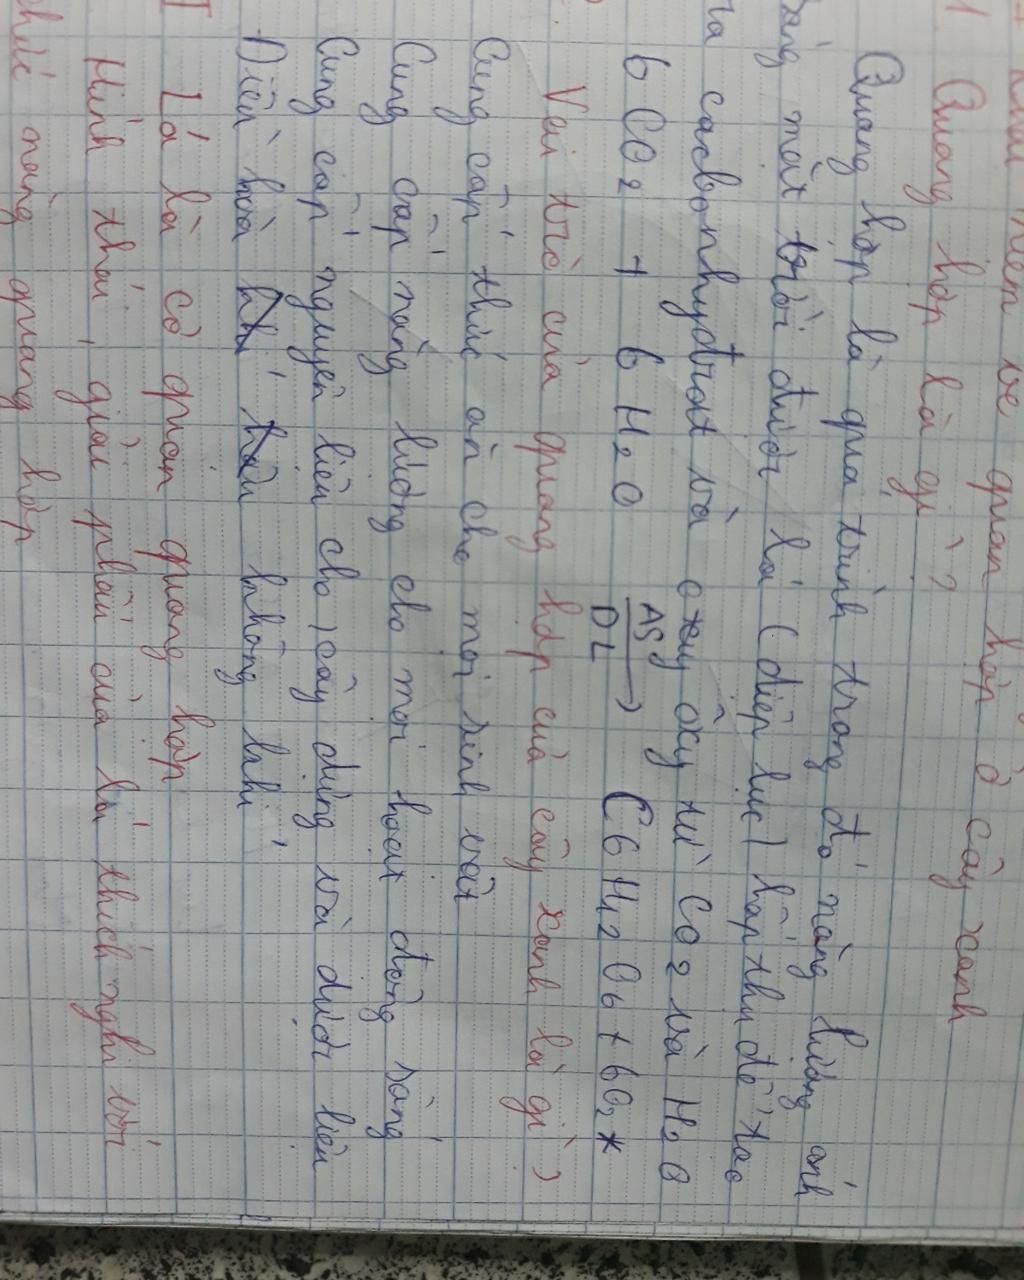 niệm về quan hợp ở cây xanh
1 Quang hợp là gì?
Quang hợp là qua trình trong đó năng lường ánh
sáng mặt trời được lá (diệp lục) hấp thu để tạo
ra cacbonhyđrat và oxy ôxy từ CO2 và H2O
6 CO2 + 6 H2O AS ĐL → C6H12O6 + 6O2 *
Vai trò của quang hợp của cây xanh là gì?
Cung cấp thức ăn cho mọi sinh vât
Cung cấp năng lường cho mọi hoạt đông sống
Cung cấp nguyên liệu cho cây dựng và dược liệu
Điều hòa không khí
I Lá là cơ quan quang hợp
Hình thái, giải phẫu của lá thích nghi với
chức năng quang hợp